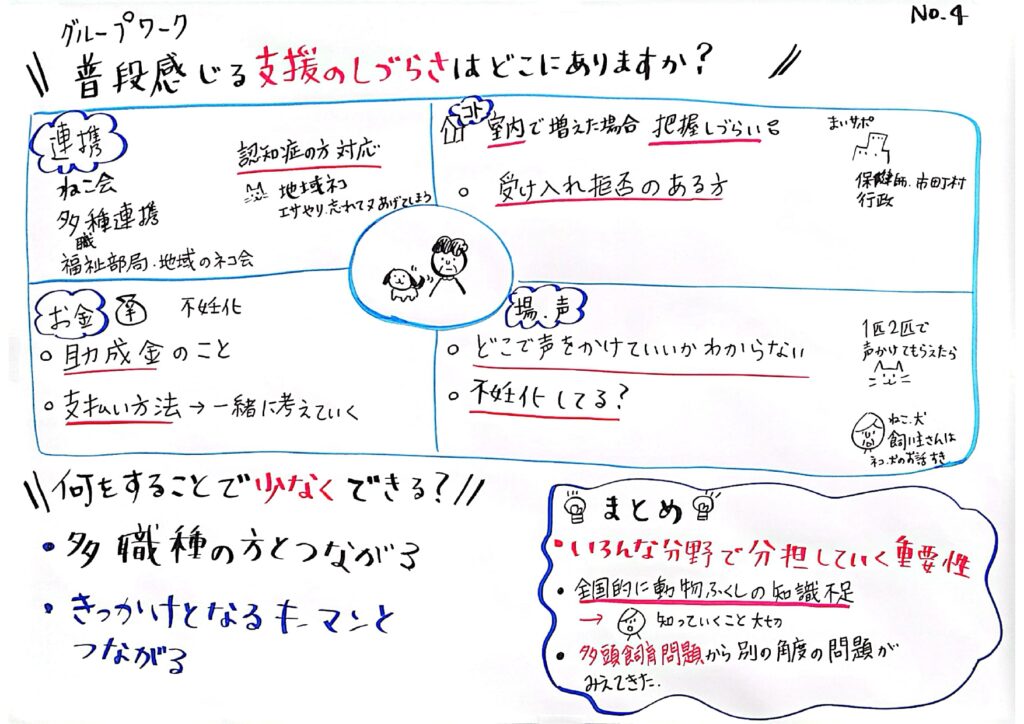 No.4
グループワーク
普段感じる支援のしづらさはどこにありますか?
連携
ねこ会
多種連携
職
福祉部局・地域のネコ会
認知症の方対応
地域ネコ
エサやり、忘れてマタあげてしまう
コト
室内で増えた場合 把握しづらい
○ 受け入れ拒否のある方
まいサポ
保健師、市町村
行政
お金
不妊化
○ 助成金のこと
○ 支払い方法 → 一緒に考えていく
場・声
○ どこで声をかけていいかわからない
○ 不妊化してる?
1匹2匹で
声かけてもらえたら
ねこ、犬
飼い主さんは
ネコ、犬のお話すき
何をすることで少なくできる?
・多職種の方とつながる
・きっかけとなるキーマンと
つながる
まとめ
・いろんな分野で分担していく重要性
・全国的に動物ふくしの知識不足
→ 知っていくこと大切
・多頭飼育問題から別の角度の問題が
みえてきた.